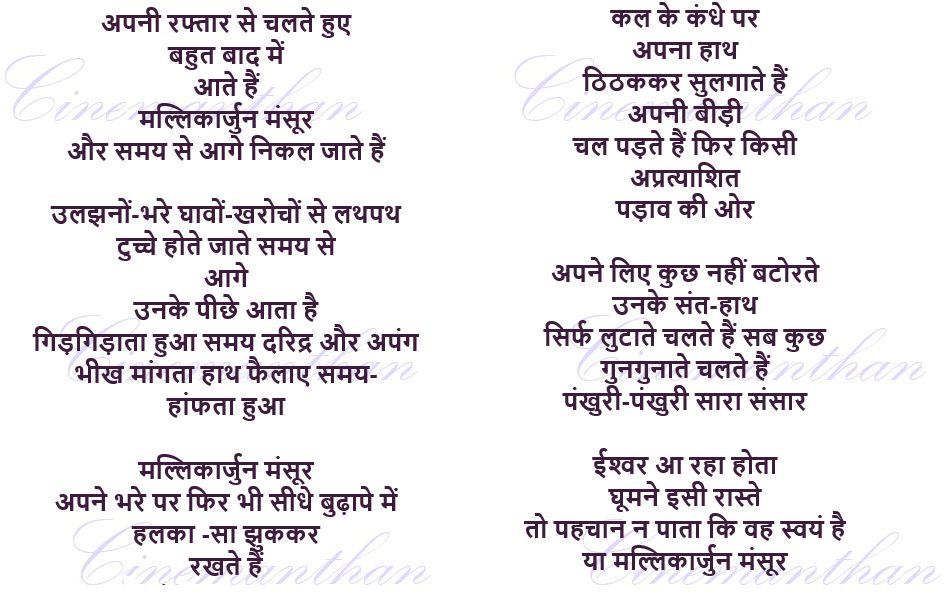 अपनी रफ्तार से चलते हुए
बहुत बाद में
आते हैं
मल्लिकार्जुन मंसूर
और समय से आगे निकल जाते हैं
उलझनों-भरे घावों-खरोचों से लथपथ
टुच्चे होते जाते समय से
आगे
उनके पीछे आता है
गिड़गिड़ाता हुआ समय दरिद्र और अपंग
भीख मांगता हाथ फैलाए समय-
हांफता हुआ
मल्लिकार्जुन मंसूर
अपने भरे पर फिर भी सीधे बुढ़ापे में
हलका -सा झुककर
रखते हैं
कल के कंधे पर
अपना हाथ
ठिठककर सुलगाते हैं
अपनी बीड़ी
चल पड़ते हैं फिर किसी
अप्रत्याशित
पड़ाव की ओर
अपने लिए कुछ नहीं बटोरते
उनके संत-हाथ
सिर्फ लुटाते चलते हैं सब कुछ
गुनगुनाते चलते हैं
पंखुरी-पंखुरी सारा संसार
ईश्वर आ रहा होता
घूमने इसी रास्ते
तो पहचान न पाता कि वह स्वयं है
या मल्लिकार्जुन मंसूर
Cinemanthan
Cinemanthan
Cinemanthan
Cinemanthan
Cinemanthan
Cinemanthan